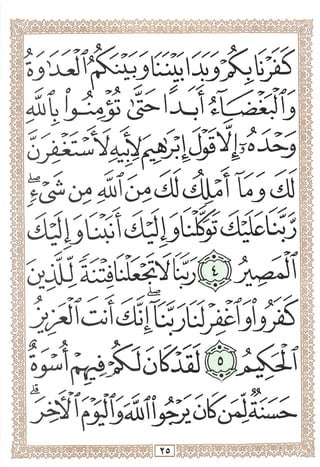 كَفَرْنَا بِكُمْ وَبَدَا بَيْنَنَا وَبَيْنَكُمُ الْعَدَاوَةُ
وَالْبَغْضَاءُ أَبَدًا حَتَّىٰ تُؤْمِنُوا بِاللَّهِ
وَحْدَهُ إِلَّا قَوْلَ إِبْرَاهِيمَ لِأَبِيهِ لَأَسْتَغْفِرَنَّ
لَكَ وَمَا أَمْلِكُ لَكَ مِنَ اللَّهِ مِن شَيْءٍ ۖ
رَّبَّنَا عَلَيْكَ تَوَكَّلْنَا وَإِلَيْكَ أَنَبْنَا وَإِلَيْكَ
الْمَصِيرُ ﴿٤﴾ رَبَّنَا لَا تَجْعَلْنَا فِتْنَةً لِّلَّذِينَ
كَفَرُوا وَاغْفِرْ لَنَا رَبَّنَا ۖ إِنَّكَ أَنتَ الْعَزِيزُ
الْحَكِيمُ ﴿٥﴾ لَقَدْ كَانَ لَكُمْ فِيهِمْ أُسْوَةٌ
حَسَنَةٌ لِّمَن كَانَ يَرْجُوا اللَّهَ وَالْيَوْمَ الْآخِرَ ۚ
٢٥